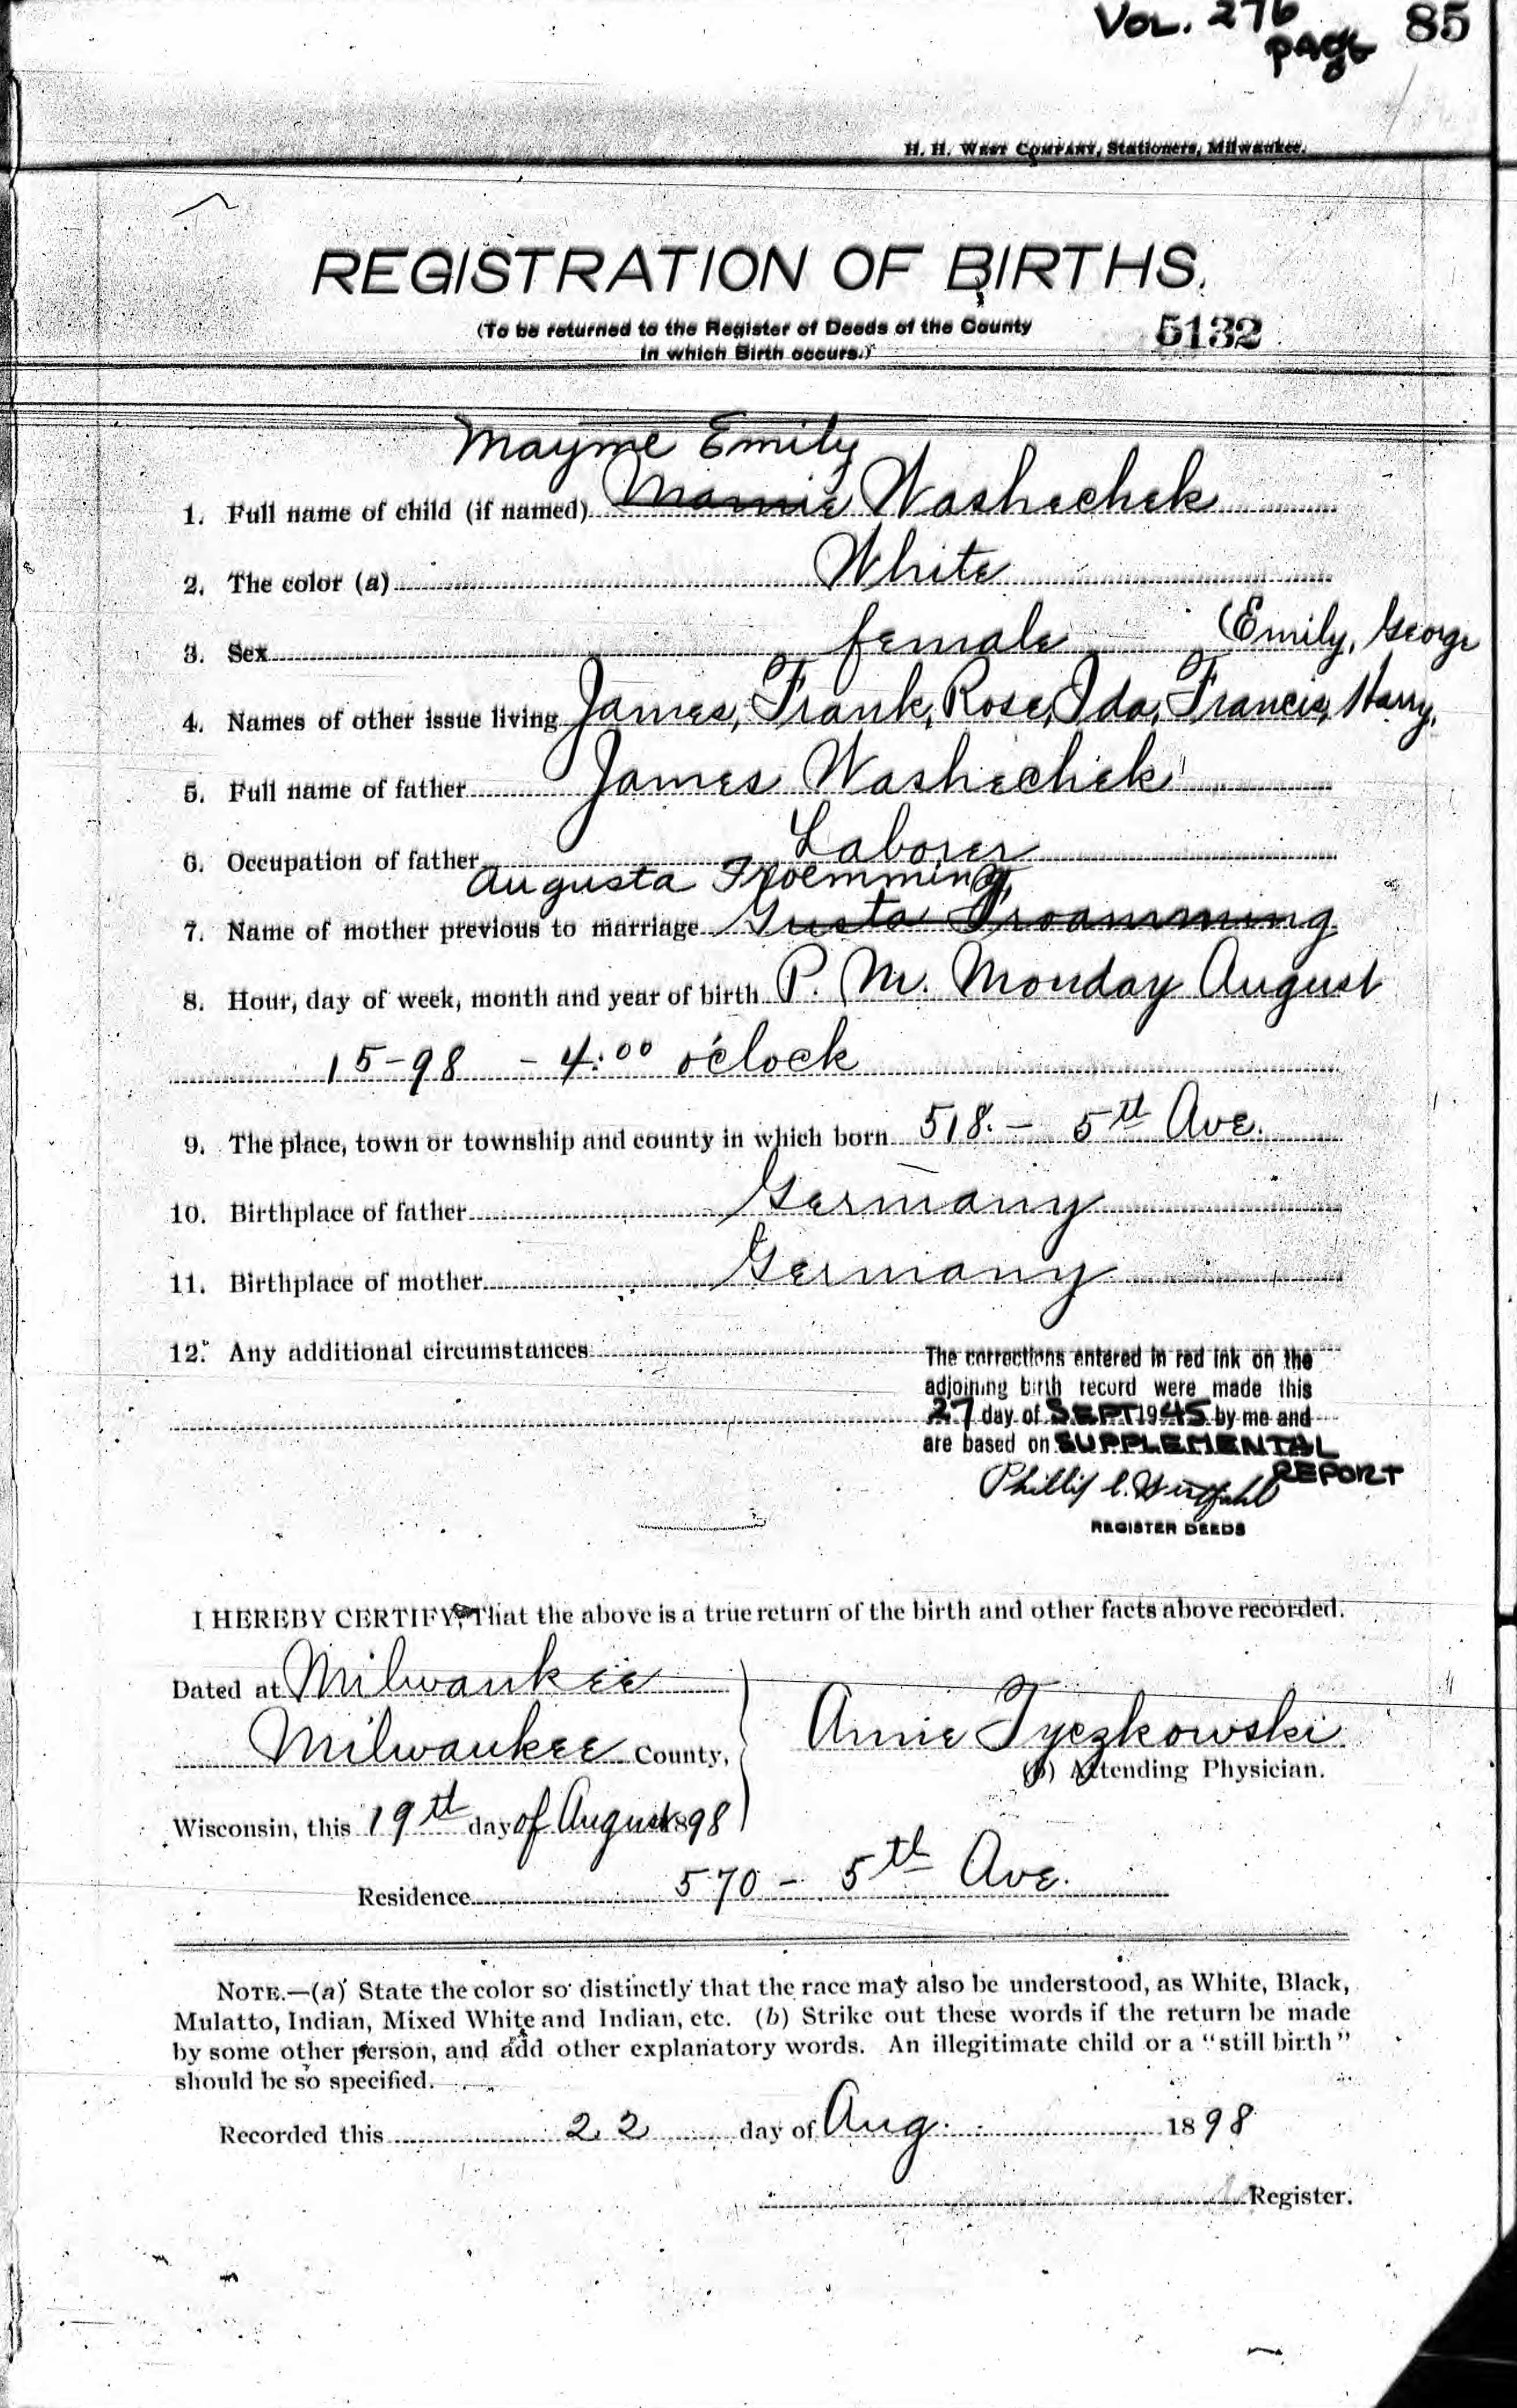 VOL. 276 85
PAGE
H. H. WEST COMPANY, Stationers, Milwaukee.
REGISTRATION OF BIRTHS.
(To be returned to the Register of Deeds of the County
in which Birth occurs.)
5132
Mayme Emily
1. Full name of child (if named) Mamie Washechek
2. The color (a) White
3. Sex female (Emily, George
4. Names of other issue living James, Frank, Rose, Ida, Francis, Harry,
5. Full name of father James Washechek
6. Occupation of father Laborer
Augusta Froemming
7. Name of mother previous to marriage Gusta Froamming
8. Hour, day of week, month and year of birth P. M. Monday August
15-98 - 4:00 o'clock
9. The place, town or township and county in which born 518. - 5th Ave.
10. Birthplace of father Germany
11. Birthplace of mother Germany
12. Any additional circumstances
The corrections entered in red ink on the
adjoining birth record were made this
27 day of SEPT 1945 by me and
are based on SUPPLEMENTAL
REPORT
Phillip C.
REGISTER DEEDS
I HEREBY CERTIFY, That the above is a true return of the birth and other facts above recorded.
Dated at Milwaukee
Milwaukee County,
Annie Tyczkowski
(b) Attending Physician.
Wisconsin, this 19th day of August 1898
Residence 570 - 5th Ave.
NOTE.—(a) State the color so distinctly that the race may also be understood, as White, Black,
Mulatto, Indian, Mixed White and Indian, etc. (b) Strike out these words if the return be made
by some other person, and add other explanatory words. An illegitimate child or a "still birth"
should be so specified.
Recorded this 22 day of Aug. 1898
Register.